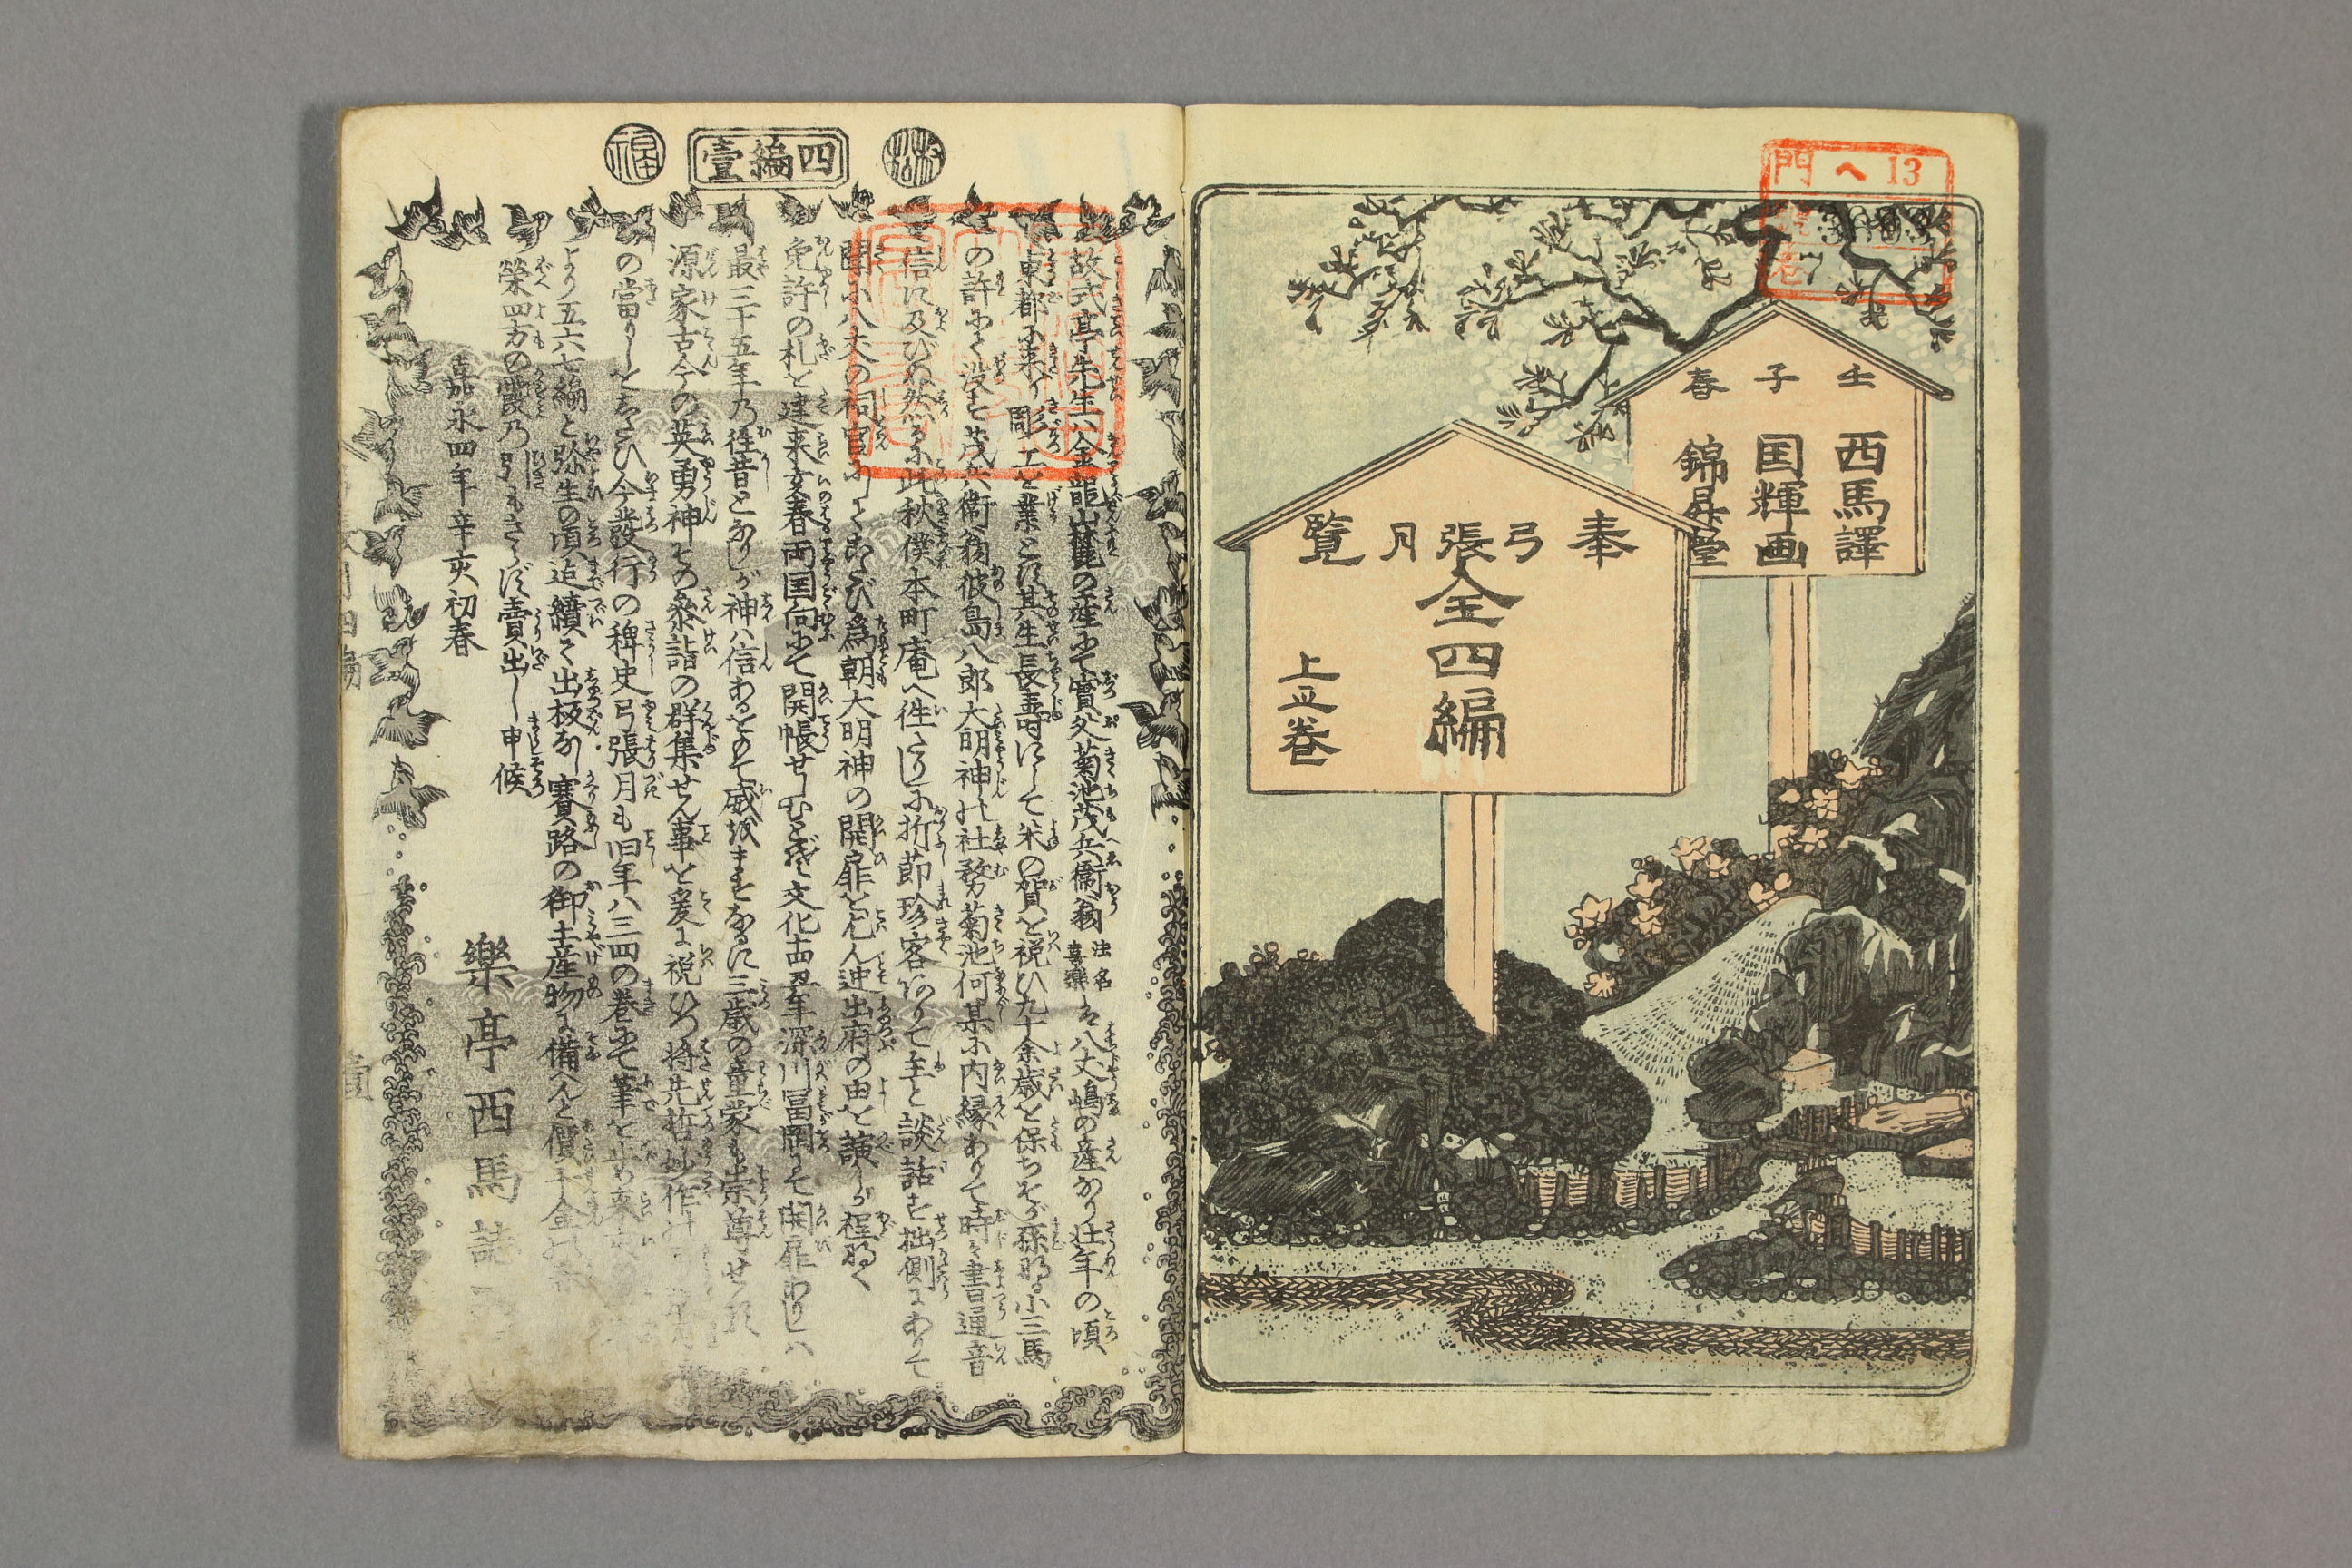 門 へ 13
3603
7
壬子春
西馬譯
国輝画
錦昇堂
奉弓張月覧
全四編
上之巻
四編壹
福
故式亭先生ハ金龍山麓の産にて實父菊池茂兵衞翁 法名喜樂 は八丈嶋の産なり壮年の頃
東都に来り彫工を業とす其生長壽にして米の賀を祝ひ九十余歳を保ちそが孫なる小三馬
の許にて没す茂兵衞翁彼島八郎大明神の社務菊池何某に内縁ありて時々書通音
信に及びぬ然るに此秋僕本町庵へ往しに折節珍客ありて主と談話す拙側にありて
聞に八丈の祠官にてこたび為朝大明神の開扉をせん迚出府の由を演しが程なく
免許の札を建来亥春両国向にて開帳せしむとぞ文化十四丑年深川冨岡にて開扉ありしハ
最三十五年乃徃昔となりしが神ハ信あるをもて威越ますなるに三歳の童蒙も崇尊せざる
源家古今の英勇神その參詣の群集せん事を爰に祝ひつ将先哲妙作の
の當りしをたひ今發行の稗史弓張月も旧年ハ三四の巻にて筆を止め
より五六七編と弥生の頃迄續て出板なし賽路の御土産物に備へんと價千金の
榮四方の霞乃引もきらず賣出し申候
嘉永四年辛亥初春
樂亭西馬誌